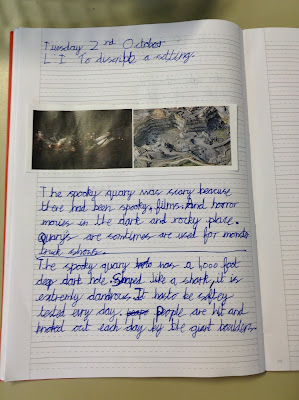 Tuesday 2nd October
L.I. To describe a setting.
The spooky quary was scary because
there had been spooky films. And horror
movies in the dark and rocky place.
Quarys are somtimes are used for monster
truck shows.
The spooky quary has a 1,000 foot
deep dark hole. Shaped like a shark, it is
extremly dandrous. It hasto be saftey
tested evry day. People are hit and
knoked out each day by the giant boulders.